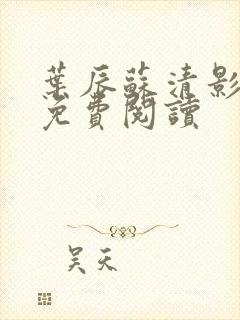 葉辰蘇清影
免費閱讀
吳天